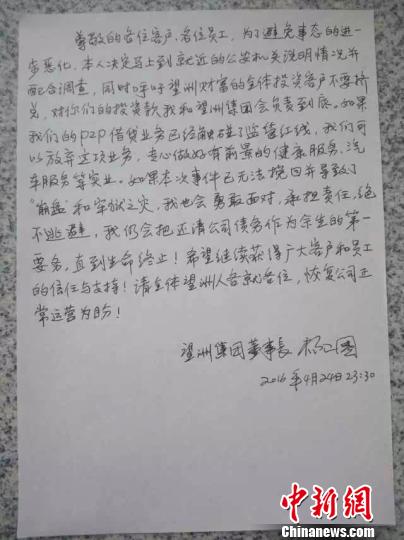 尊敬的各位客户、各位员工,为了避免事态的进一
步恶化,本人决定马上到就近的公安机关说明情况并
配合调查,同时呼吁望洲财富的全体投资客户不要挤
兑,对你们的投资款,我和望洲集团会负责到底。如果
我们的P2P借贷业务已经触碰了监管红线,我们可
以放弃这项业务,专心做好有前景的健康服务、汽
车服务等实业。如果本次事件已无法挽回并导致了
“崩盘”和牢狱之灾,我也会勇敢面对,承担责任,绝
不逃避,我仍会把还清公司债务作为余生的第一
要务,直到生命终止!希望继续获得广大客户和员工
的信任与支持!请全体望洲人各就各位,恢复公司正
常运营为盼!
望洲集团董事长 杨卫国
2016年4月24日23:30
中新网
Chinanews.com